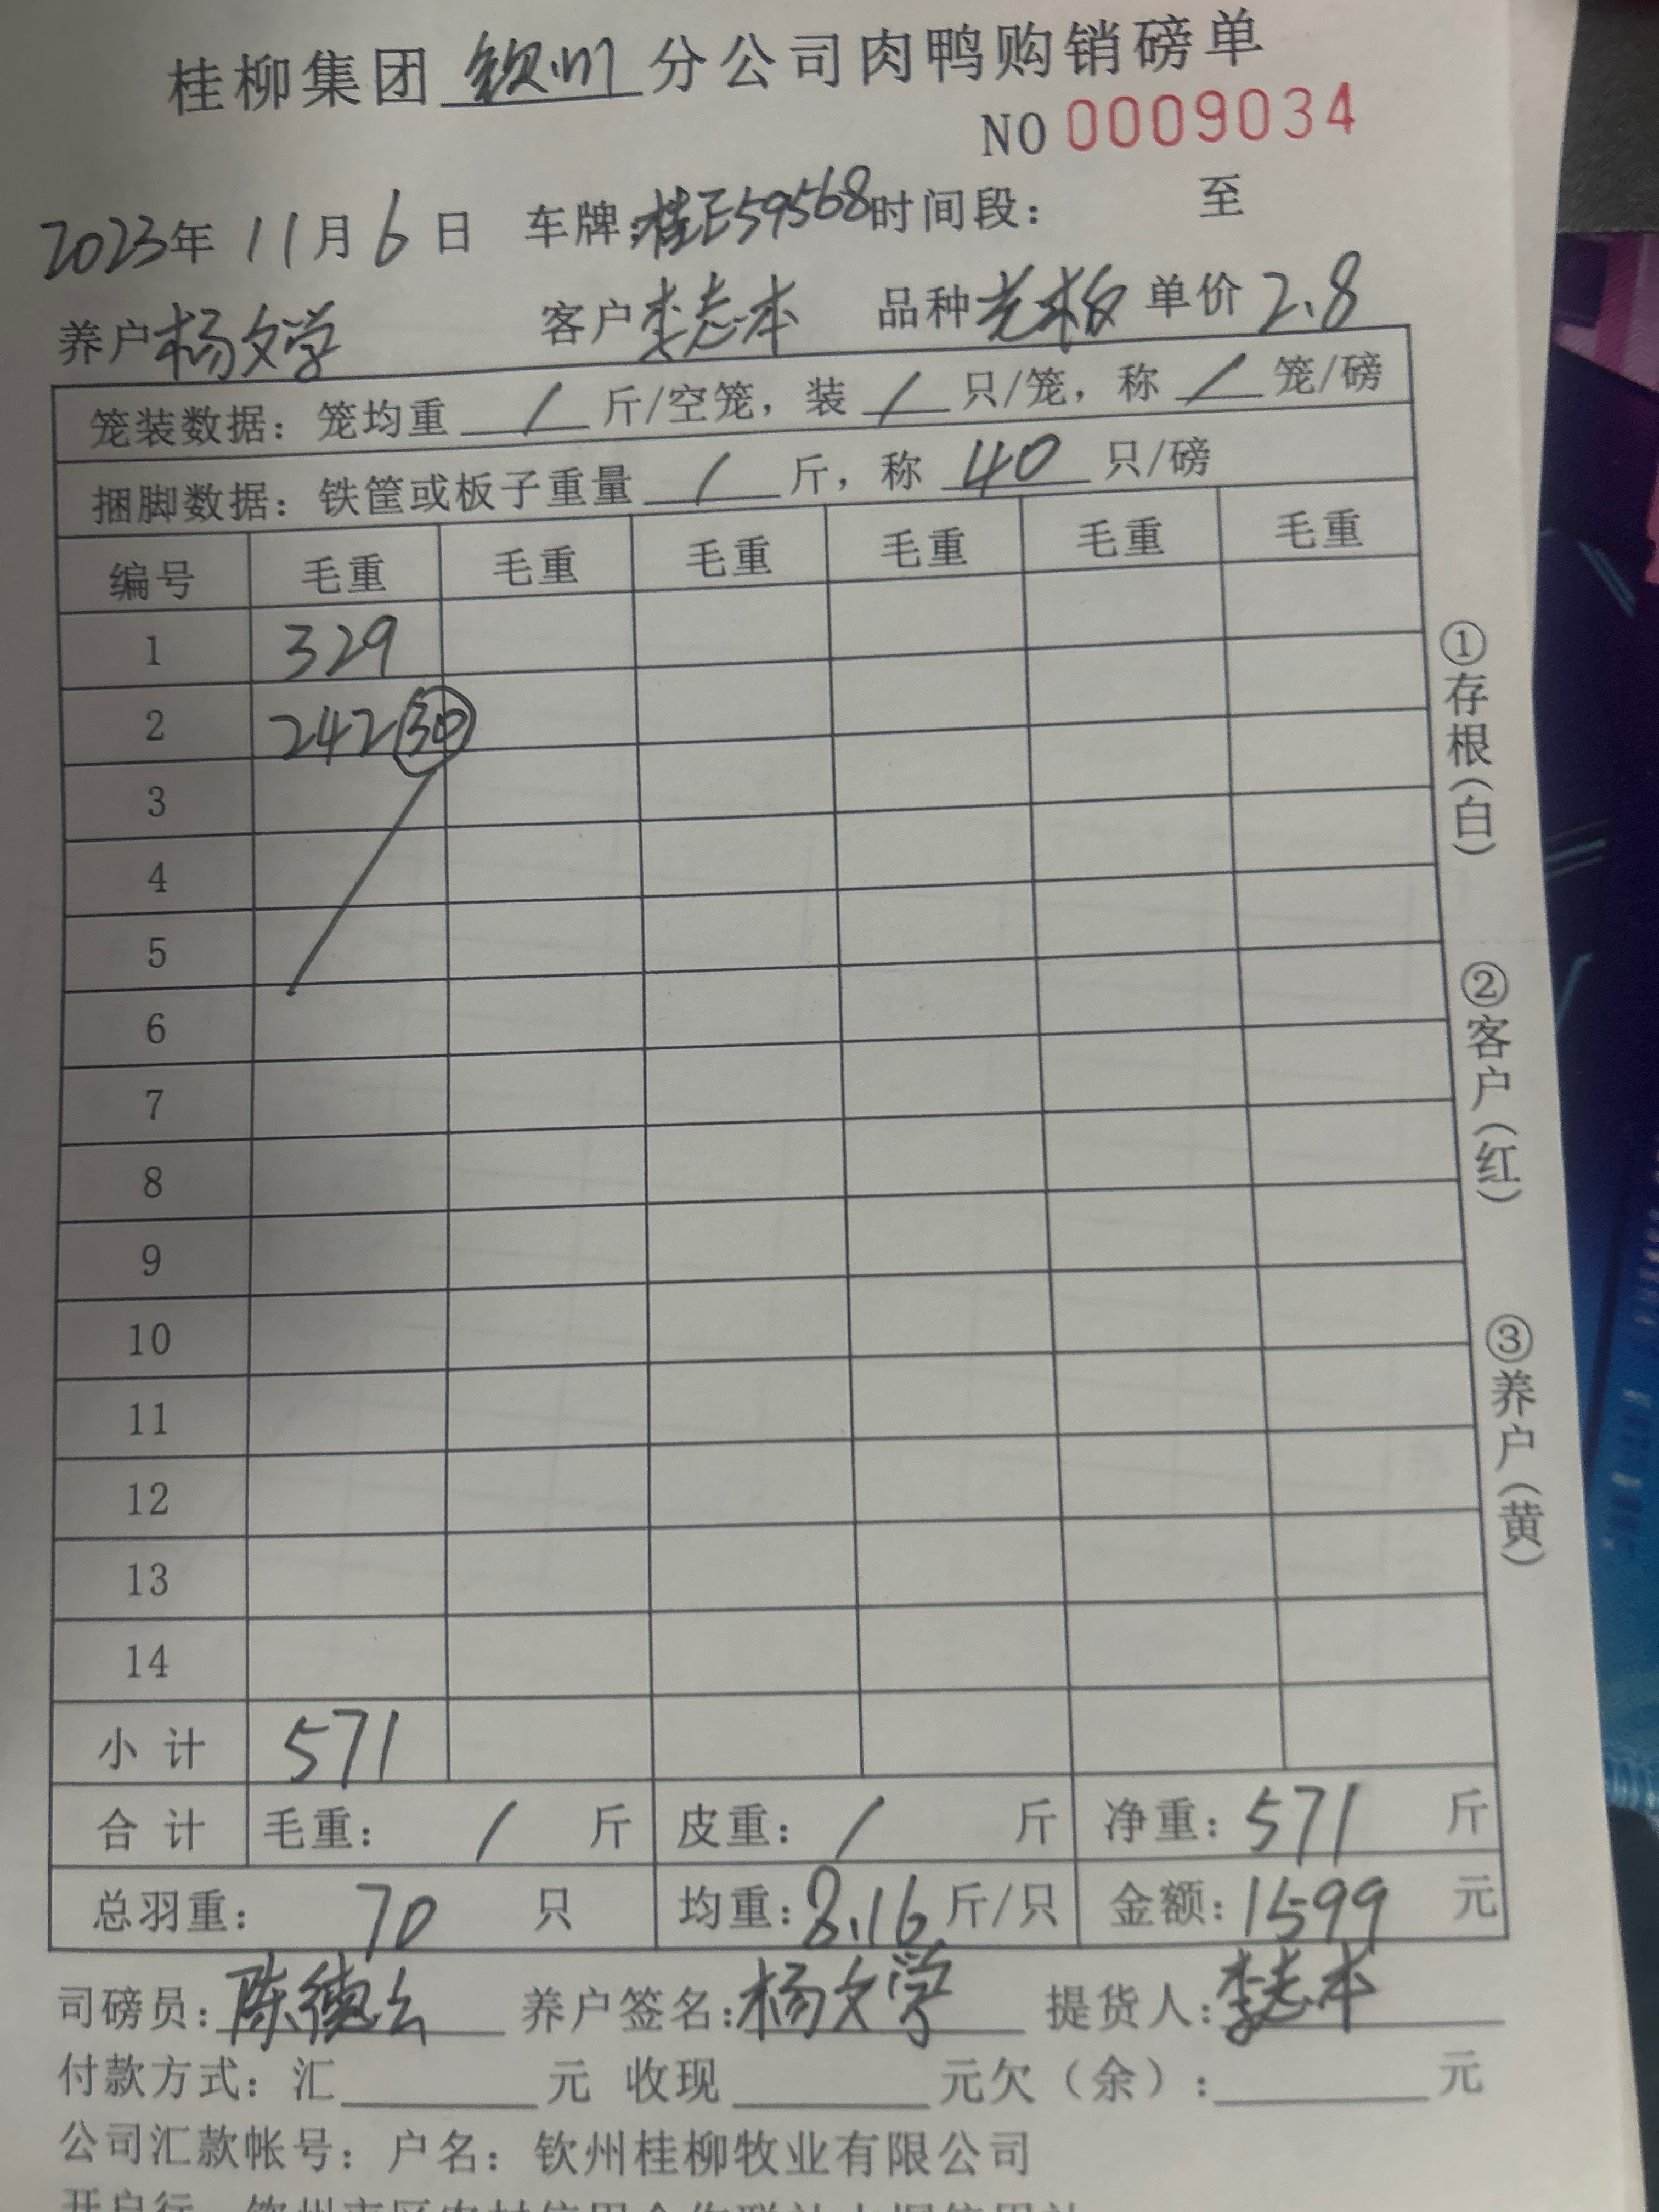 桂柳集团 钦州 分公司肉鸭购销磅单
NO 0009034
2023年 11月 6日 车牌:桂E59568时间段： 至
养户杨文学 客户李志本 品种光板 单价2.8
笼装数据：笼均重 / 斤/空笼，装 / 只/笼，称 / 笼/磅
捆脚数据：铁筐或板子重量 / 斤，称 40 只/磅
编号 毛重 毛重 毛重 毛重 毛重 毛重
1 329
2 242 30
3
4
5
6
7
8
9
10
11
12
13
14
小计 571
合计 毛重： / 斤 皮重： / 斤 净重：571 斤
总羽重： 70 只 均重：8.16斤/只 金额：1599 元
司磅员：陈德云 养户签名：杨文学 提货人：李志本
付款方式：汇 元 收现 元欠（余）： 元
公司汇款帐号：户名：钦州桂柳牧业有限公司
①存根（白）
②客户（红）
③养户（黄）